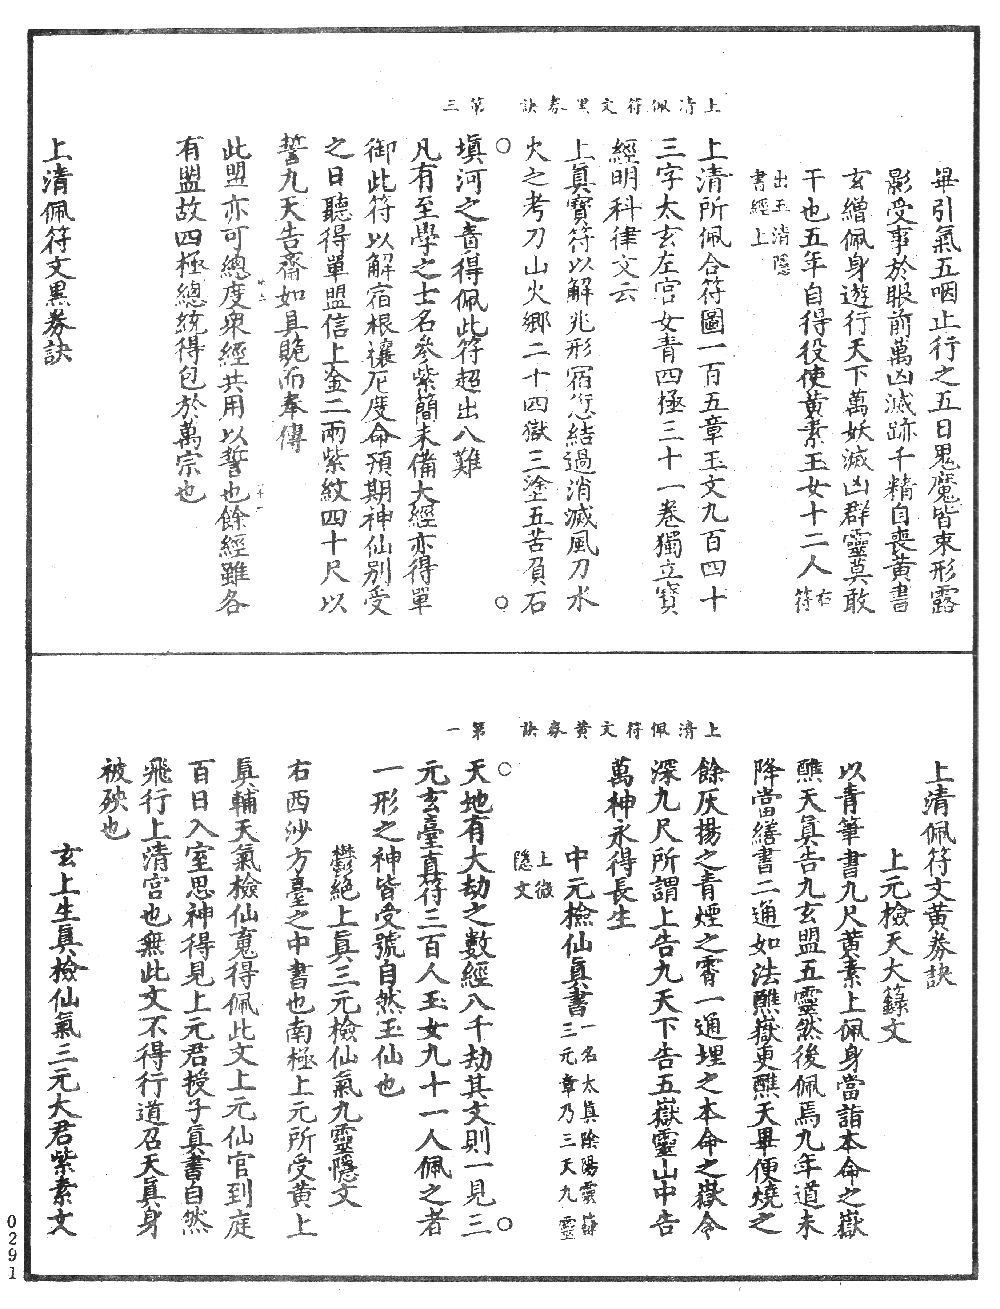 畢引氣五咽止行之五日鬼魔皆束形露
影受事於眼前萬凶滅跡千精自喪黃書
玄繒佩身遊行天下萬妖滅凶群靈莫敢
干也五年自得役使黃素玉女十二人右符
出玉清隱
書經上
上清佩符文黑券訣 第三
上清所佩合符圖一百五章玉文九百四十
三字太玄左宮女青四極三十一卷獨立寶
經明科律文云
上真寶符以解兆形宿愆結過消滅風刀水
火之考刀山火鄉二十四獄三塗五苦負石
填河之音得佩此符超出八難
凡有至學之士名參紫簡未備大經亦得單
御此符以解宿根禳厄度命預期神仙別受
之日聽得單盟信上金二兩紫紋四十尺以
誓九天告齋如具䝱而奉傳
此盟亦可總度衆經共用以誓也餘經雖各
有盟故四極總統得包於萬宗也
上清佩符文黑券訣
上清佩符文黃券訣
上元檢天大籙文
以青筆書九尺黃素上佩身當詣本命之嶽
醮天真告九玄盟五靈然後佩焉九年道未
降當繕書二通如法醮嶽更醮天畢便燒之
上清佩符文黃券訣 第一
餘灰揚之青煙之霄一通埋之本命之嶽令
深九尺所謂上告九天下告五嶽靈山中告
萬神永得長生
中元檢仙真書一名太真陰陽靈籙三元章乃三天九靈
上微
隱文
天地有大劫之數經八千劫其文則一見三
元玄臺真符三百人玉女九十一人佩之者
一形之神皆受號自然玉仙也
鬱絕上真三元檢仙氣九靈隱文
右西沙方臺之中書也南極上元所受黃上
真輔天氣檢仙嵬得佩此文上元仙官到庭
百日入室思神得見上元君授子真書自然
飛行上清宮也無此文不得行道召天真身
被殃也
玄上生真檢仙氣三元大君紫素文
0291